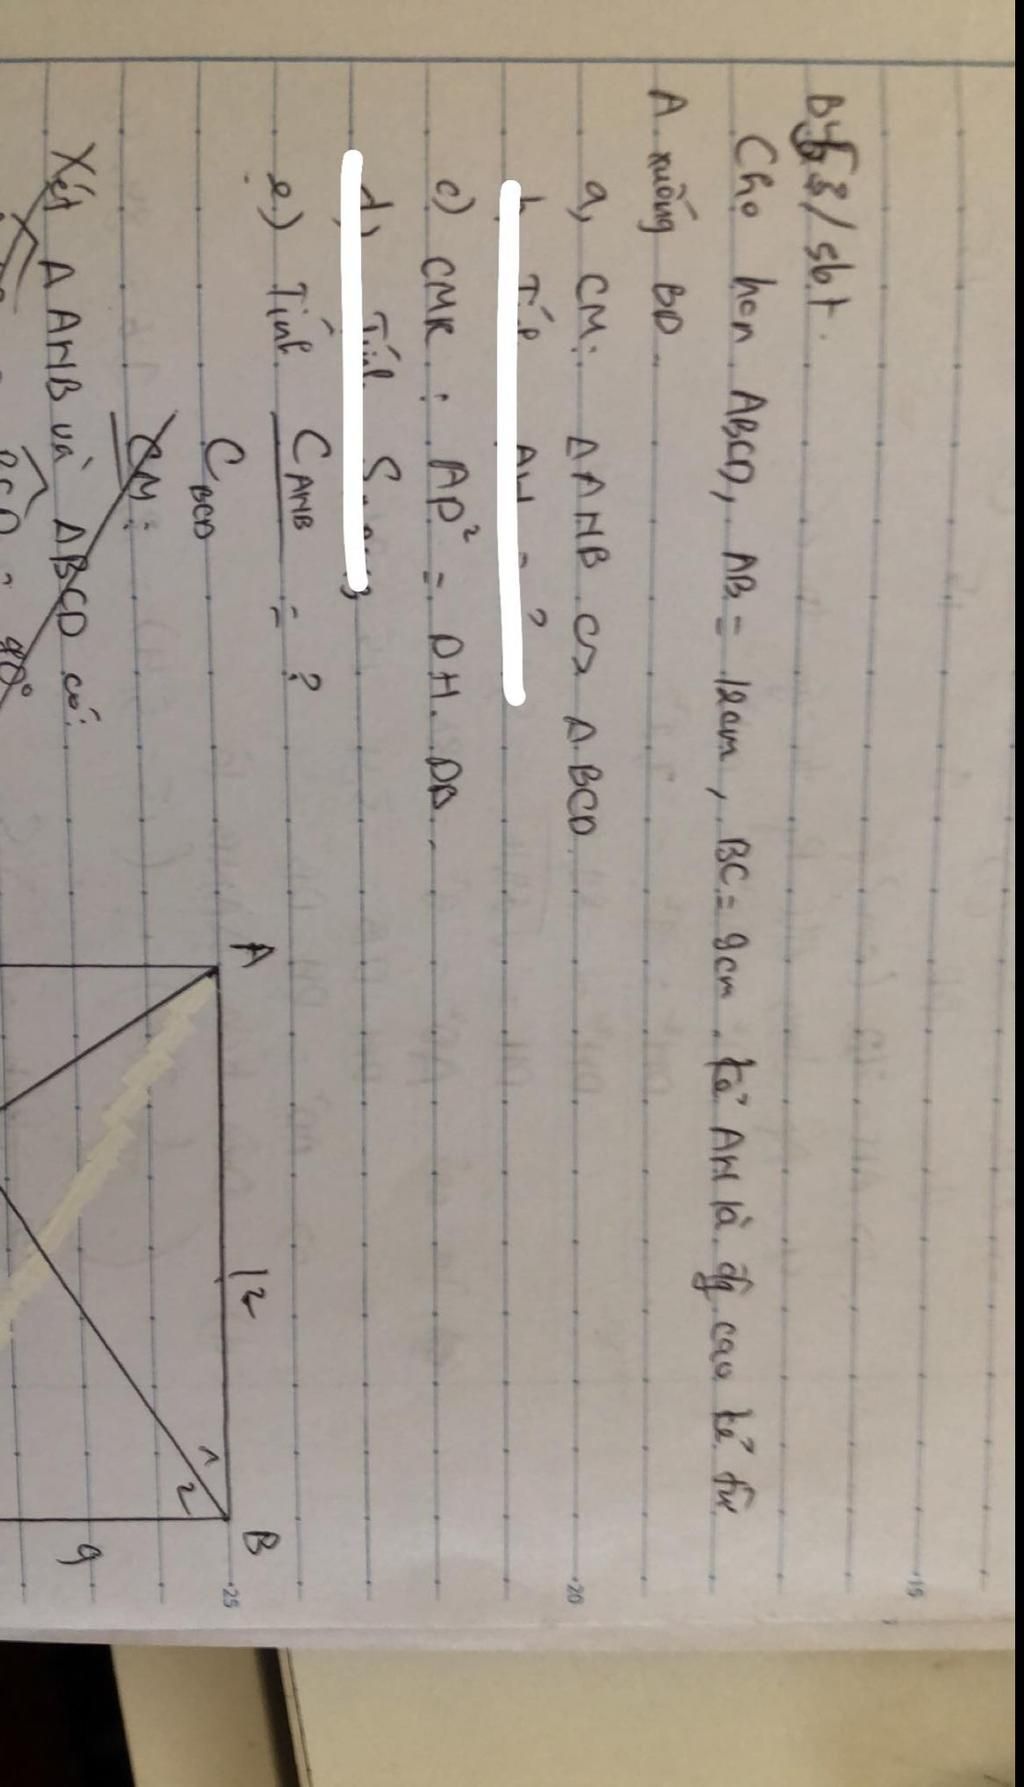 / sbt.
Cho hcn ABCD, AB = 12cm, BC = 9cm. kẻ AH là đg cao kẻ từ
A xuống BD.
a, CM: ΔAHB ∽ ΔBCD
c) CMR: AD² = DH. DB.
e) Tính C_AHB = ?
C_BCD
CM:
Xét Δ AHB và ΔBCD có:
90°
A
12
B
1
2
9
15
20
25